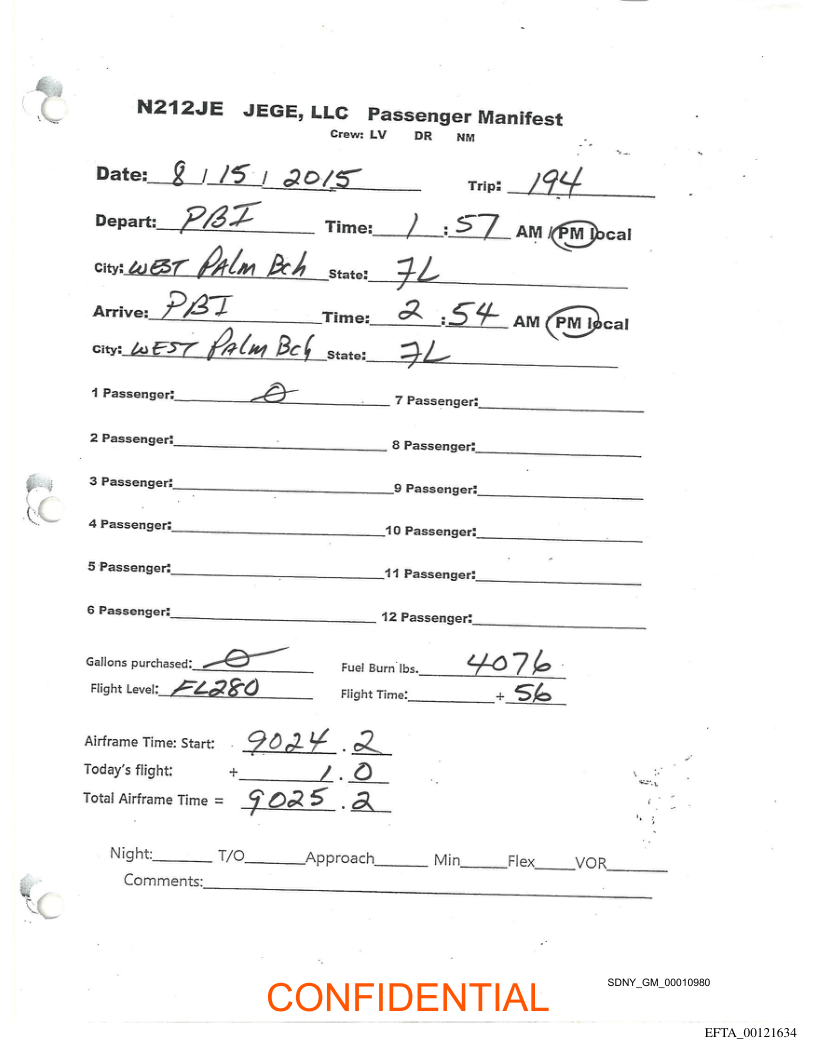 N212JE JEGE, LLC Passenger Manifest
Crew: LV DR NM
Date: 8 / 15 / 2015 Trip: 194
Depart: PBI Time: 1 : 57 AM / PM local
City: WEST PALM BCH State: FL
Arrive: PBI Time: 2 : 54 AM / PM local
City: WEST PALM BCH State: FL
1 Passenger: 0 7 Passenger:
2 Passenger: 8 Passenger:
3 Passenger: 9 Passenger:
4 Passenger: 10 Passenger:
5 Passenger: 11 Passenger:
6 Passenger: 12 Passenger:
Gallons purchased: 0 Fuel Burn lbs. 4076
Flight Level: FL280 Flight Time: + 56
Airframe Time: Start: 9024.2
Today's flight: + 1.0
Total Airframe Time = 9025.2
Night: T/O Approach Min Flex VOR
Comments:
SDNY_GM_00010980
CONFIDENTIAL
EFTA_00121634